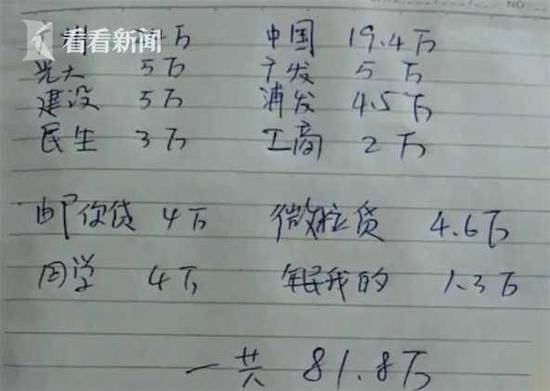 看看新闻
NO
万 中国 19.4万
光大 5万 广发 5万
建设 5万 浦发 4.5万
民生 3万 工商 2万
邮你贷 4万 微粒贷 4.6万
同学 4万 我的 1.3万
一共 81.8万